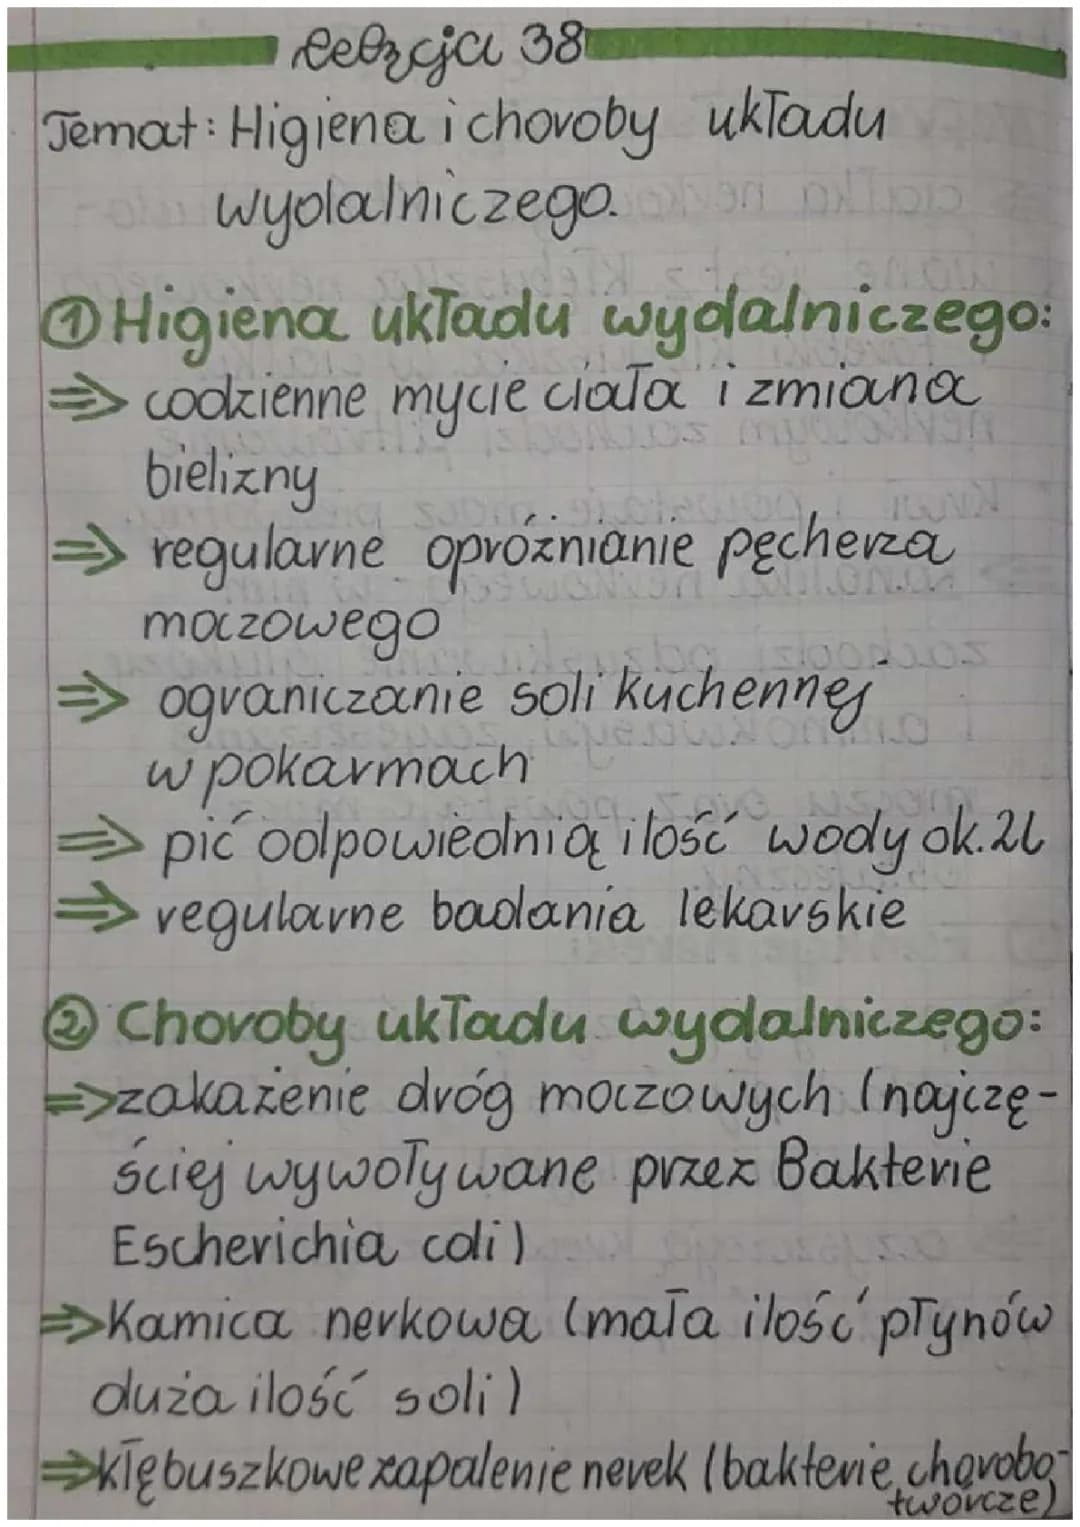 Lekcja 38
Temat: Higiena i choroby układu
wydalniczego.
① Higiena układu wydalniczego:
⇒ codzienne mycie ciała i zmiana
bielizny
⇒ regularne opróżnianie pęcherza
moczowego
⇒ ograniczanie soli kuchennej
w pokarmach
⇒ pić odpowiednią ilość wody ok. 2l
⇒ regularne badania lekarskie
② Choroby układu wydalniczego:
⇒ zakażenie dróg moczowych (najczę-
ściej wywoływane przez Bakterie
Escherichia coli)
⇒ Kamica nerkowa (mała ilość płynów
duża ilość soli)
⇒ kłębuszkowe zapalenie nerek (bakterie chorobo-
twórcze)